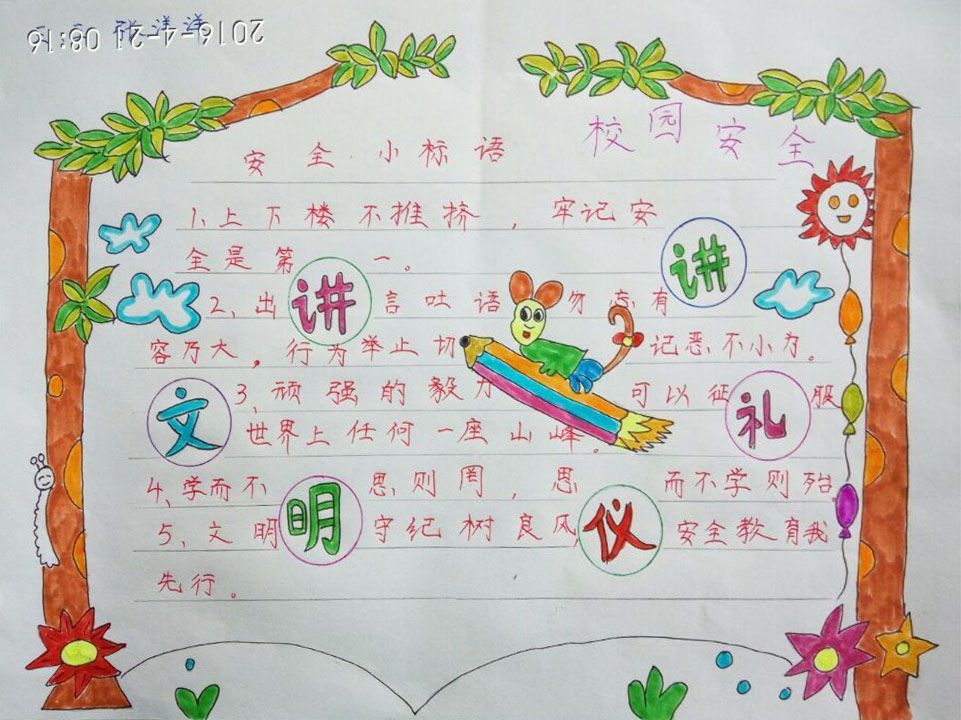 张洋洋
2016-4-21 08:16
校园安全
安全小标语
1、上下楼不推挤，牢记安
全是第一。
2、出言吐语勿忘有
容乃大，行为举止切记恶不小为。
3、顽强的毅力可以征服
世界上任何一座山峰。
4、学而不思则罔，思而不学则殆
5、文明守纪树良风，安全教育我
先行。
讲
文
明
讲
礼
仪